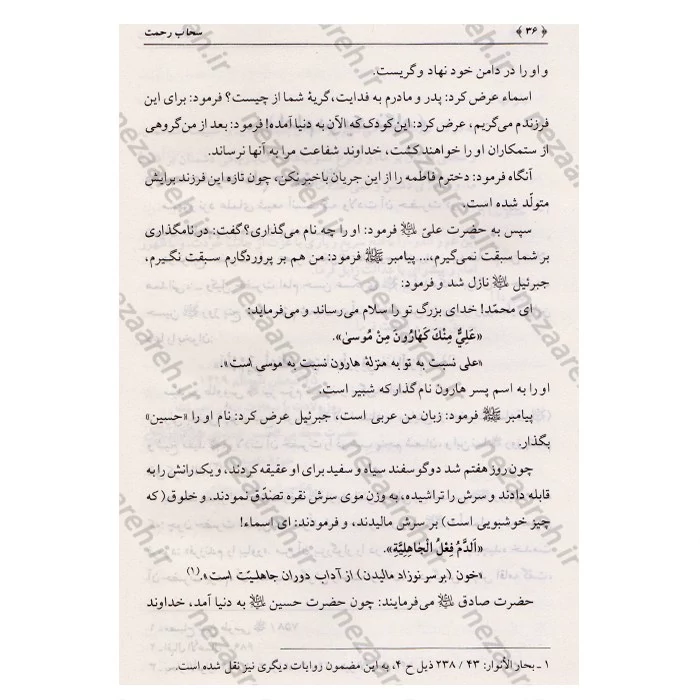 ﴿ ۳۶ ﴾ سحاب رحمت
و او را در دامن خود نهاد و گریست.
اسماء عرض کرد: پدر و مادرم به فدایت، گریهٔ شما از چیست؟ فرمود: برای این
فرزندم می‌گریم، عرض کرد: این کودک که الآن به دنیا آمده! فرمود: بعد از من گروهی
از ستمکاران او را خواهند کشت، خداوند شفاعت مرا به آنها نرساند.
آنگاه فرمود: دخترم فاطمه را از این جریان باخبر نکن، چون تازه این فرزند برایش
متولّد شده است.
سپس به حضرت علیّ علیه السلام فرمود: او را چه نام می‌گذاری؟ گفت: در نامگذاری
بر شما سبقت نمی‌گیرم،... پیامبر ﷺ فرمود: من هم بر پروردگارم سبقت نگیرم،
جبرئیل علیه السلام نازل شد و فرمود:
ای محمّد! خدای بزرگ تو را سلام می‌رساند و می‌فرماید:
«عَلِيٌّ مِنْكَ كَهَارُونَ مِنْ مُوسىٰ».
«علی نسبت به تو به منزلهٔ هارون نسبت به موسی است».
او را به اسم پسر هارون نام گذار که شبیر است.
پیامبر ﷺ فرمود: زبان من عربی است، جبرئیل عرض کرد: نام او را «حسین»
بگذار.
چون روز هفتم شد دو گوسفند سیاه و سفید برای او عقیقه کردند، و یک رانش را به
قابله دادند و سرش را تراشیده، به وزن موی سرش نقره تصدّق نمودند. و خلوق (که
چیز خوشبویی است) بر سرش مالیدند، و فرمودند: ای اسماء!
«اَلدَّمُ فِعْلُ الْجَاهِلِيَّةِ».
«خون (بر سر نوزاد مالیدن) از آداب دوران جاهلیّت است».(۱)
حضرت صادق علیه السلام می‌فرمایند: چون حضرت حسین علیه السلام به دنیا آمد، خداوند
۱ ـ بحار الأنوار: ۴۳ / ۲۳۸ ذیل ح ۴، به این مضمون روایات دیگری نیز نقل شده است.
nezaareh.ir